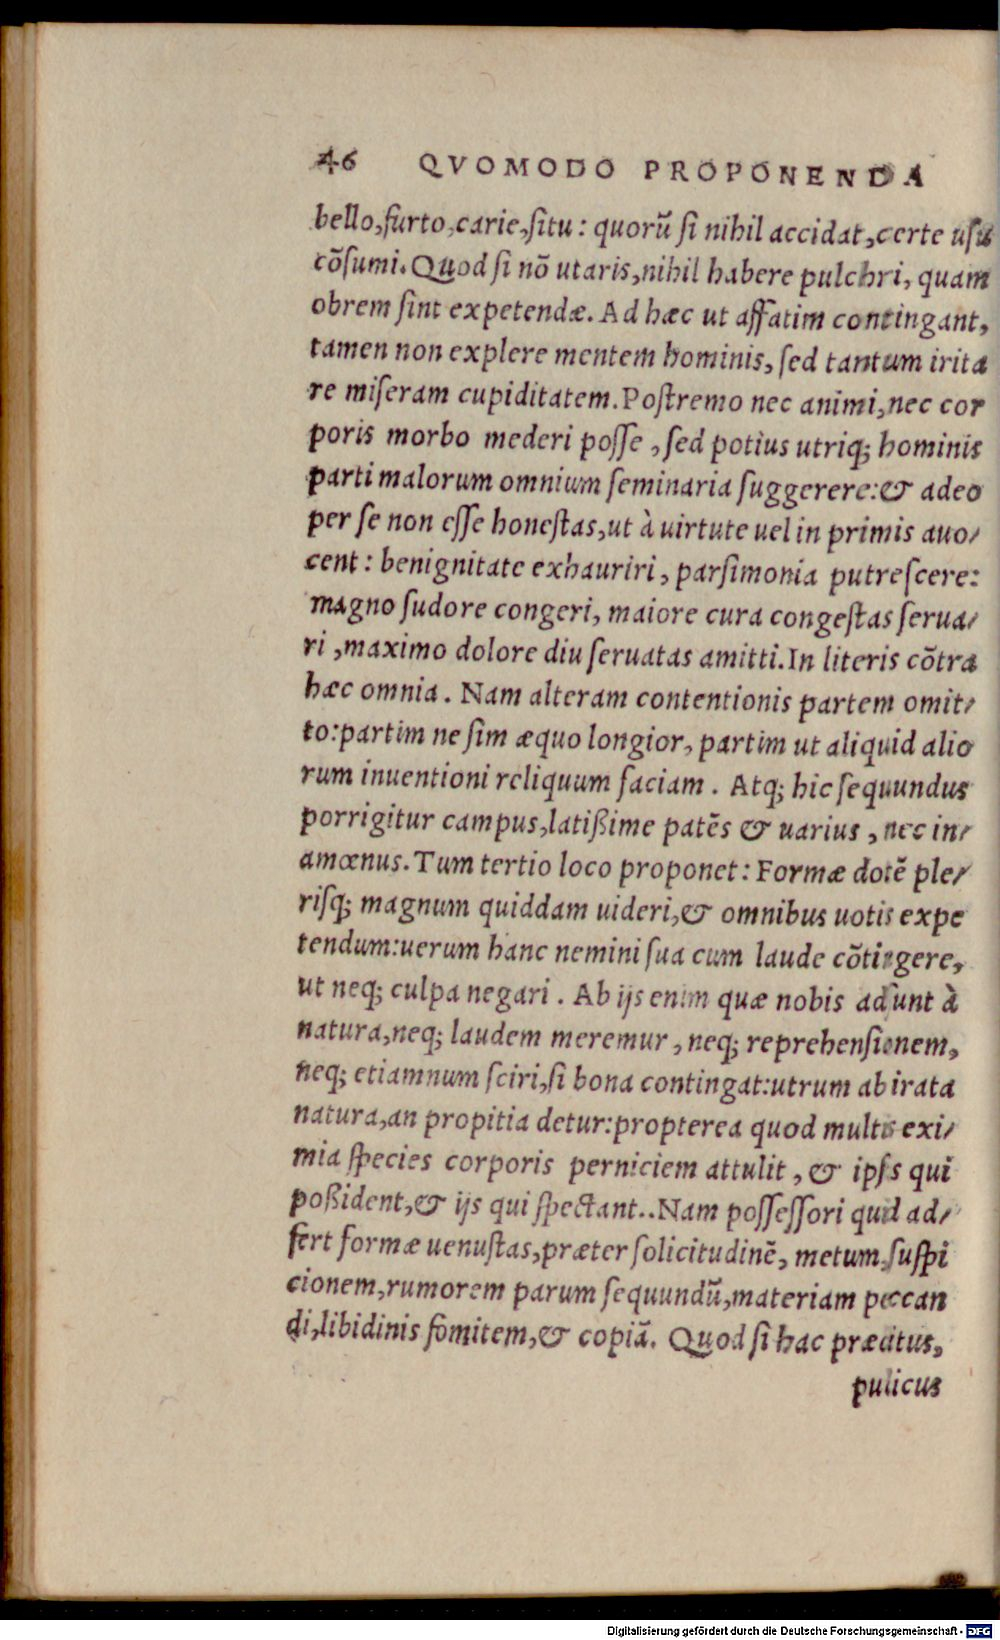 46 QVOMODO PROPONENDA
bello, furto, carie, ſitu: quorũ ſi nihil accidat, certe uſu
cõſumi. Quod ſi nõ utaris, nihil habere pulchri, quam
obrem ſint expetendæ. Ad hæc ut affatim contingant,
tamen non explere mentem hominis, ſed tantum irita
re miſeram cupiditatem. Poſtremo nec animi, nec cor
poris morbo mederi poſſe, ſed potius utriq; hominis
parti malorum omnium ſeminaria ſuggerere: & adeo
per ſe non eſſe honeſtas, ut à uirtute uel in primis auo/
cent: benignitate exhauriri, parſimonia putreſcere:
magno ſudore congeri, maiore cura congeſtas ſerua/
ri, maximo dolore diu ſeruatas amitti. In literis cõtra
hæc omnia. Nam alteram contentionis partem omit/
to: partim ne ſim æquo longior, partim ut aliquid alio
rum inuentioni reliquum faciam. Atq; hic ſequundus
porrigitur campus, latißime patẽs & uarius, nec in/
amœnus. Tum tertio loco proponet: Formæ dotẽ ple/
riſq; magnum quiddam uideri, & omnibus uotis expe
tendum: uerum hanc nemini ſua cum laude cõtingere,
ut neq; culpa negari. Ab ijs enim quæ nobis adſunt à
natura, neq; laudem meremur, neq; reprehenſionem,
neq; etiamnum ſciri, ſi bona contingat: utrum ab irata
natura, an propitia detur: propterea quod multis exi/
mia ſpecies corporis perniciem attulit, & ipſis qui
poßident, & ijs qui ſpectant.. Nam poſſeſſori quid ad/
fert formæ uenuſtas, præter ſolicitudinẽ, metum, ſuſpi
cionem, rumorem parum ſequundũ, materiam peccan
di, libidinis fomitem, & copiã. Quod ſi hac præditus,
publicus
Digitalisierung gefördert durch die Deutsche Forschungsgemeinschaft - DFG